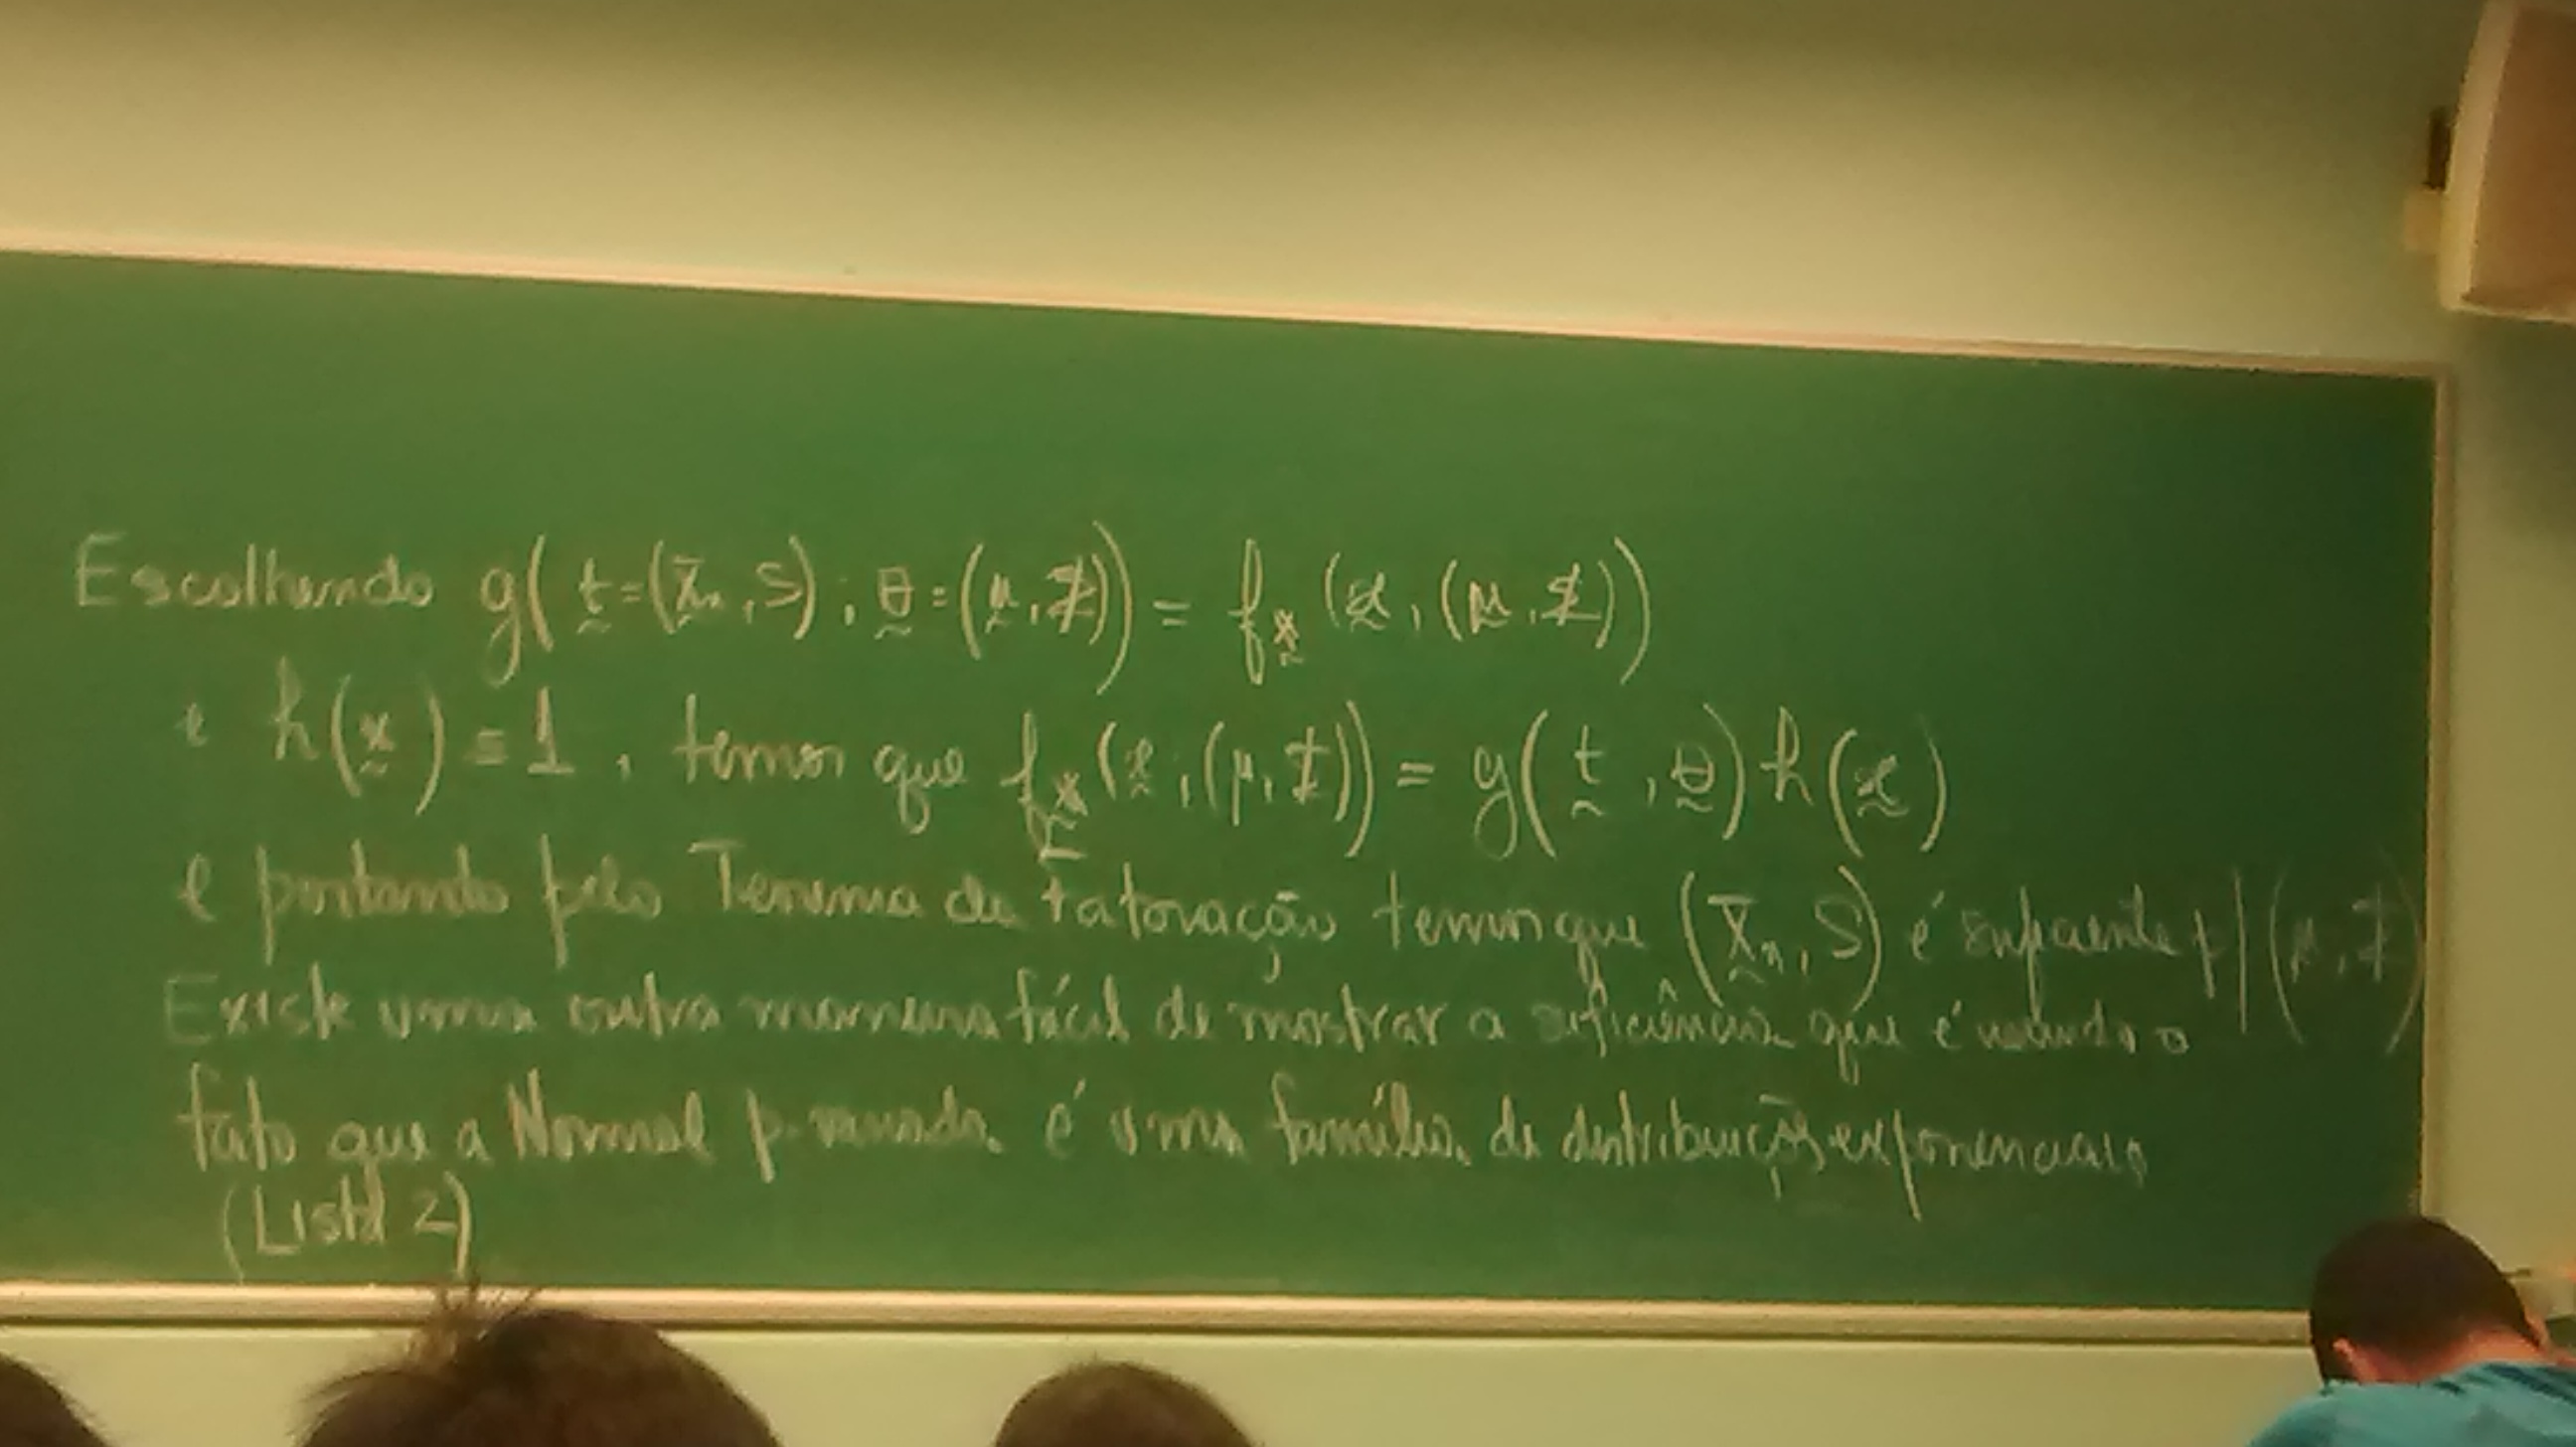 Escolhendo g( t̰ = (x̰̄ₙ, S) ; θ̰ = (μ̰, Σ̰)) = f_x̰ (x̰, (μ̰, Σ̰))
e h(x̰) = 1 , temos que f_x̰ (x̰ ; (μ, Σ̰)) = g( t̰ , θ̰ ) h (x̰)
e portando pelo Teorema da Fatoração temos que (X̰̄ₙ, S) é suficiente p/ (μ̰, Σ̰)
Existe uma outra maneira fácil de mostrar a suficiência que é usando o
fato que a Normal p-variada é uma família de distribuições exponenciais
(Lista 2)